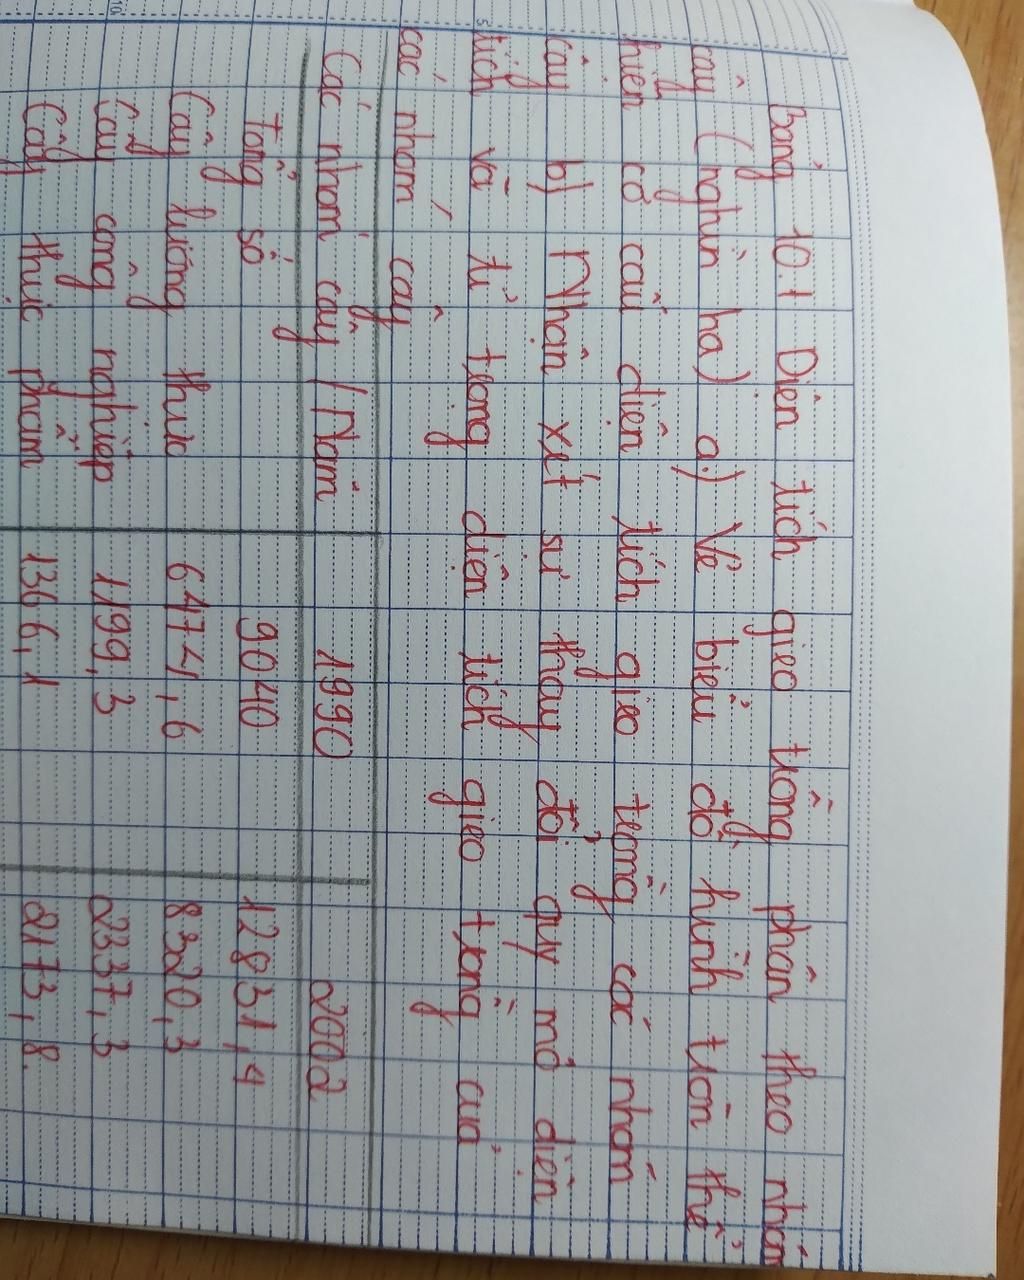 Bảng 10.1 Diện tích gieo trồng phân theo nhóm
cây (nghìn ha) a) Vẽ biểu đồ hình tròn thể
hiện cơ cấu diện tích gieo trồng các nhóm
cây b) Nhận xét sự thay đổi quy mô diện
tích và tỉ trọng diện tích gieo trồng của
các nhóm cây
Các nhóm cây / Năm 1990 2002
Tổng số 9040 12831,4
Cây lương thực 6474,6 8320,3
Cây công nghiệp 1199,3 2337,3
Cây thực phẩm 1366,1 2173,8